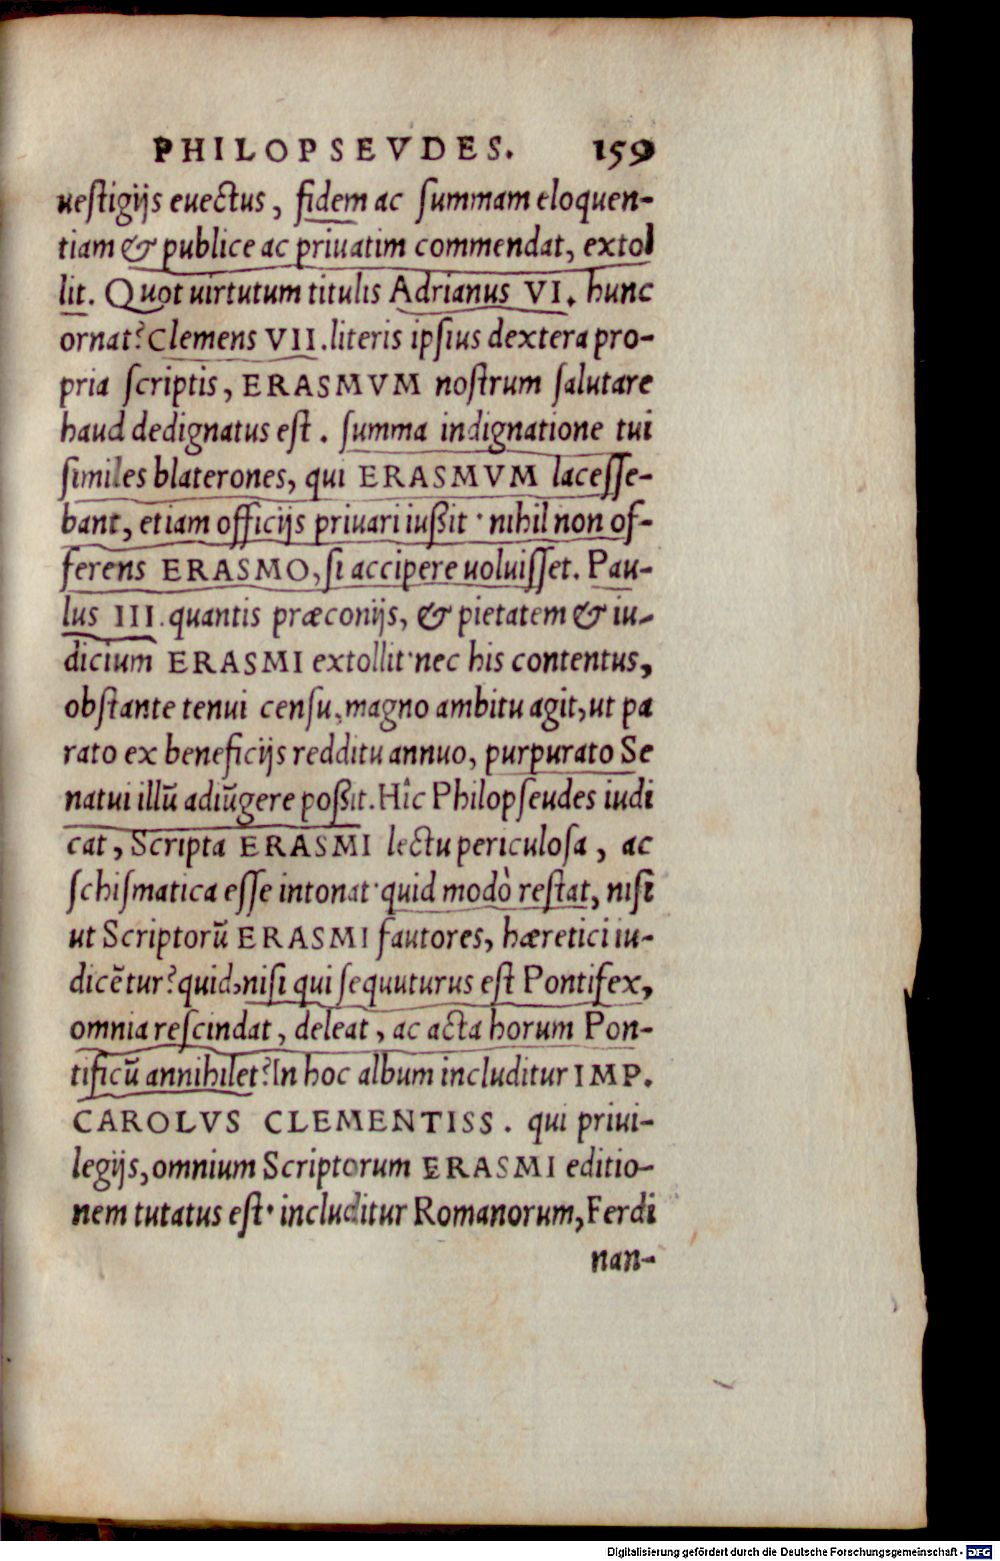 PHILOPSEVDES. 159
uestigijs euectus, fidem ac summam eloquen-
tiam & publice ac priuatim commendat, extol
lit. Quot uirtutum titulis Adrianus VI. hunc
ornat? Clemens VII. literis ipsius dextera pro-
pria scriptis, ERASMVM nostrum salutare
haud dedignatus est. summa indignatione tui
similes blaterones, qui ERASMVM lacesse-
bant, etiam officijs priuari iußit· nihil non of-
ferens ERASMO, si accipere uoluisset. Pau-
lus III. quantis præconijs, & pietatem & iu-
dicium ERASMI extollit·nec his contentus,
obstante tenui censu, magno ambitu agit, ut pa
rato ex beneficijs redditu annuo, purpurato Se
natui illũ adiũgere poßit. Hîc Philopseudes iudi
cat, Scripta ERASMI lectu periculosa, ac
schismatica esse intonat·quid modò restat, nisi
ut Scriptorũ ERASMI fautores, hæretici iu-
dicẽtur? quid, nisi qui sequuturus est Pontifex,
omnia rescindat, deleat, ac acta horum Pon-
tificũ annihilet? In hoc album includitur IMP.
CAROLVS CLEMENTISS. qui priui-
legijs, omnium Scriptorum ERASMI editio-
nem tutatus est· includitur Romanorum, Ferdi
nan-
Digitalisierung gefördert durch die Deutsche Forschungsgemeinschaft - DFG